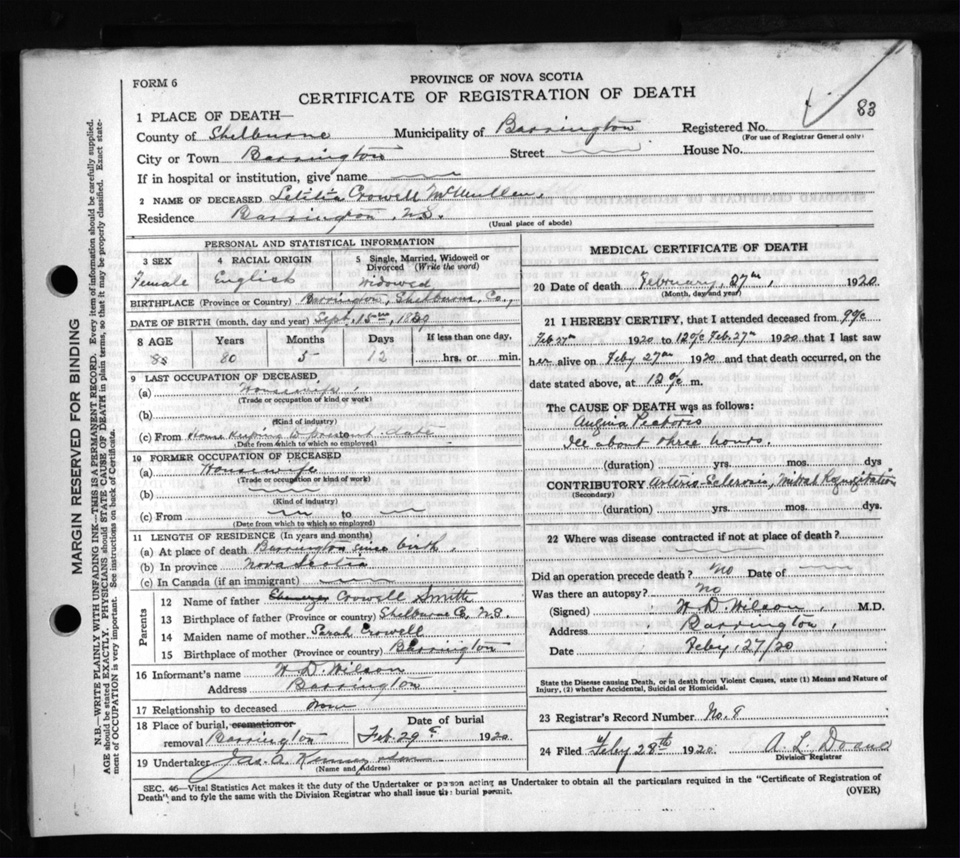 FORM 6
PROVINCE OF NOVA SCOTIA
CERTIFICATE OF REGISTRATION OF DEATH
83
1 PLACE OF DEATH—
County of Shelburne Municipality of Barrington Registered No.
(For use of Registrar General only)
City or Town Barrington Street House No.
If in hospital or institution, give name
2 NAME OF DECEASED Letitia Crowell McMullen.
Residence Barrington, N.S.
(Usual place of abode)
MARGIN RESERVED FOR BINDING
N.B.—WRITE PLAINLY WITH UNFADING INK—THIS IS A PERMANENT RECORD. Every item of information should be carefully supplied.
AGE should be stated EXACTLY. PHYSICIANS should STATE CAUSE OF DEATH in plain terms, so that it may be properly classified. Exact state-
ment of OCCUPATION is very important. See instructions on back of Certificate.
PERSONAL AND STATISTICAL INFORMATION
3 SEX 4 RACIAL ORIGIN 5 Single, Married, Widowed or
Divorced (Write the word)
Female English Widowed
BIRTHPLACE (Province or Country) Barrington, Shelburne, Co.,
DATE OF BIRTH (month, day and year) Sept. 15th, 1839
8 AGE Years Months Days If less than one day,
80 5 12 hrs. or min.
9 LAST OCCUPATION OF DECEASED
(a) Housewife
(Trade or occupation of kind or work)
(b)
(Kind of industry)
(c) From House Keeping to present date
(Date from which to which so employed)
10 FORMER OCCUPATION OF DECEASED
(a) Housewife
(Trade or occupation of kind or work)
(b)
(Kind of industry)
(c) From to
(Date from which to which so employed)
11 LENGTH OF RESIDENCE (In years and months)
(a) At place of death Barrington since birth.
(b) In province Nova Scotia
(c) In Canada (if an immigrant)
Parents
12 Name of father Ebenezer Crowell Smith
13 Birthplace of father (Province or country) Shelburne Co, N.S.
14 Maiden name of mother Sarah Crowell
15 Birthplace of mother (Province or country) Barrington
16 Informant's name W. D. Wilson
Address Barrington
17 Relationship to deceased none
18 Place of burial, cremation or Date of burial
removal Barrington Feb. 29 1920
19 Undertaker Jas. A. Kenney
(Name and Address)
MEDICAL CERTIFICATE OF DEATH
20 Date of death February, 27th, 1920
(Month, day and year)
21 I HEREBY CERTIFY, that I attended deceased from
Feb 27th 1920 to Feb. 27th 1920 that I last saw
her alive on Feby 27th 1920 and that death occurred, on the
date stated above, at 12 m.
The CAUSE OF DEATH was as follows:
Angina Pectoris
Ill about three hours.
(duration) yrs. mos. dys
CONTRIBUTORY Arterio-Sclerosis, Mitral Regurgitation
(Secondary)
(duration) yrs. mos. dys.
22 Where was disease contracted if not at place of death?
Did an operation precede death? No Date of
Was there an autopsy? No
(Signed) W. D. Wilson, M.D.
Address Barrington,
Date Feby, 27/20
State the Disease causing Death, or in death from Violent Causes, state (1) Means and Nature of
Injury, (2) whether Accidental, Suicidal or Homicidal.
23 Registrar's Record Number No. 8
24 Filed Feby 28th 1920
Division Registrar
SEC. 46—Vital Statistics Act makes it the duty of the Undertaker or person acting as Undertaker to obtain all the particulars required in the "Certificate of Registration of
Death" and to fyle the same with the Division Registrar who shall issue the burial permit. (OVER)